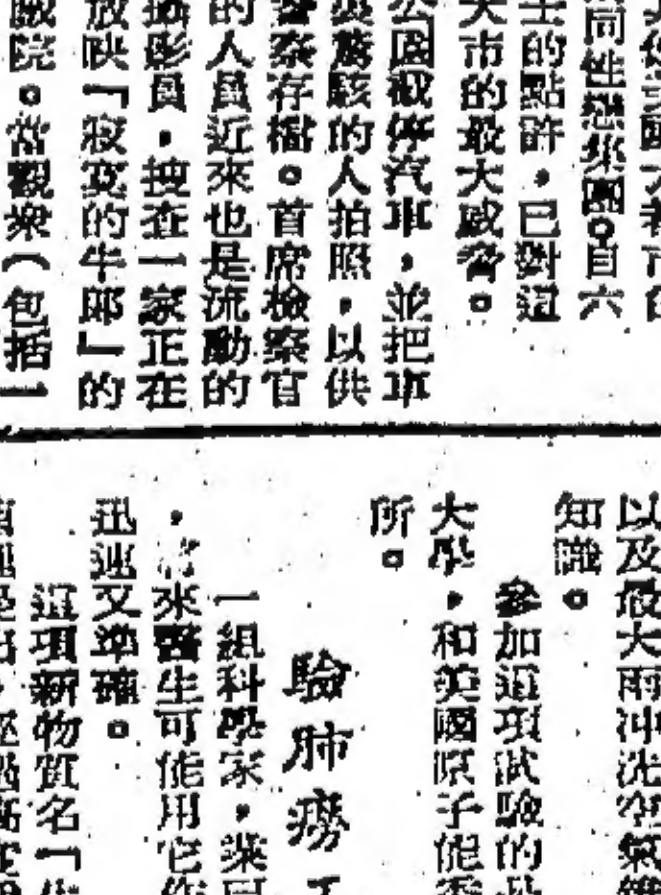 同性戀集團。自六
士的默許，已對這
大市的最大威脅。
公園截停汽車，並把車
駭的人拍照，以供
察存檔。首席檢察官
的人員近來也是流動的
攝影員，搜查一家正在
放映『寂寞的牛郎』的
戲院。當觀衆（包括一
以及最大雨冲洗空氣
知識。
參加這項試驗的
大學，和美國原子能
所。
驗肺癆
一組科學家，
，將來醫生可能用它作
迅速又準確。
這項新物質名『